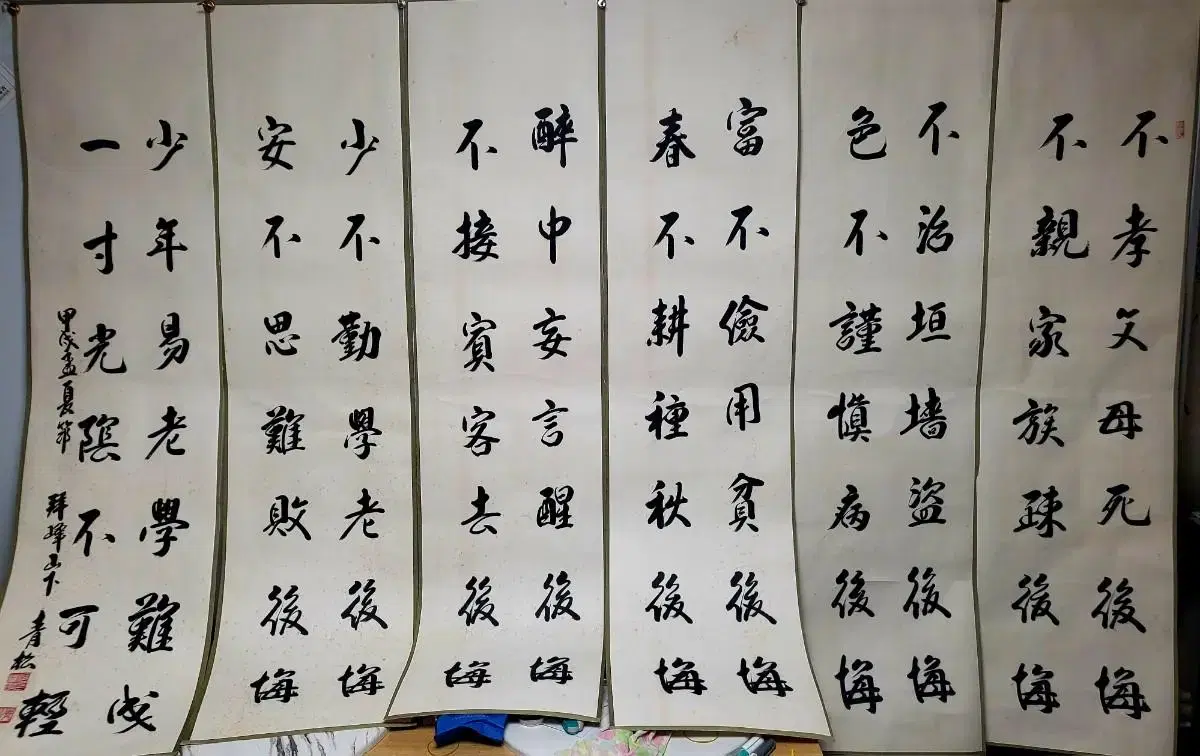 不孝父母死後悔
不親家族疎後悔
不治垣墙盜後悔
色不謹慎病後悔
富不儉用貧後悔
春不耕種秋後悔
醉中妄言醒後悔
不接賓客去後悔
少不勤學老後悔
安不思難敗後悔
少年易老學難成
一寸光陰不可輕
甲戌孟夏
峰山下 青松